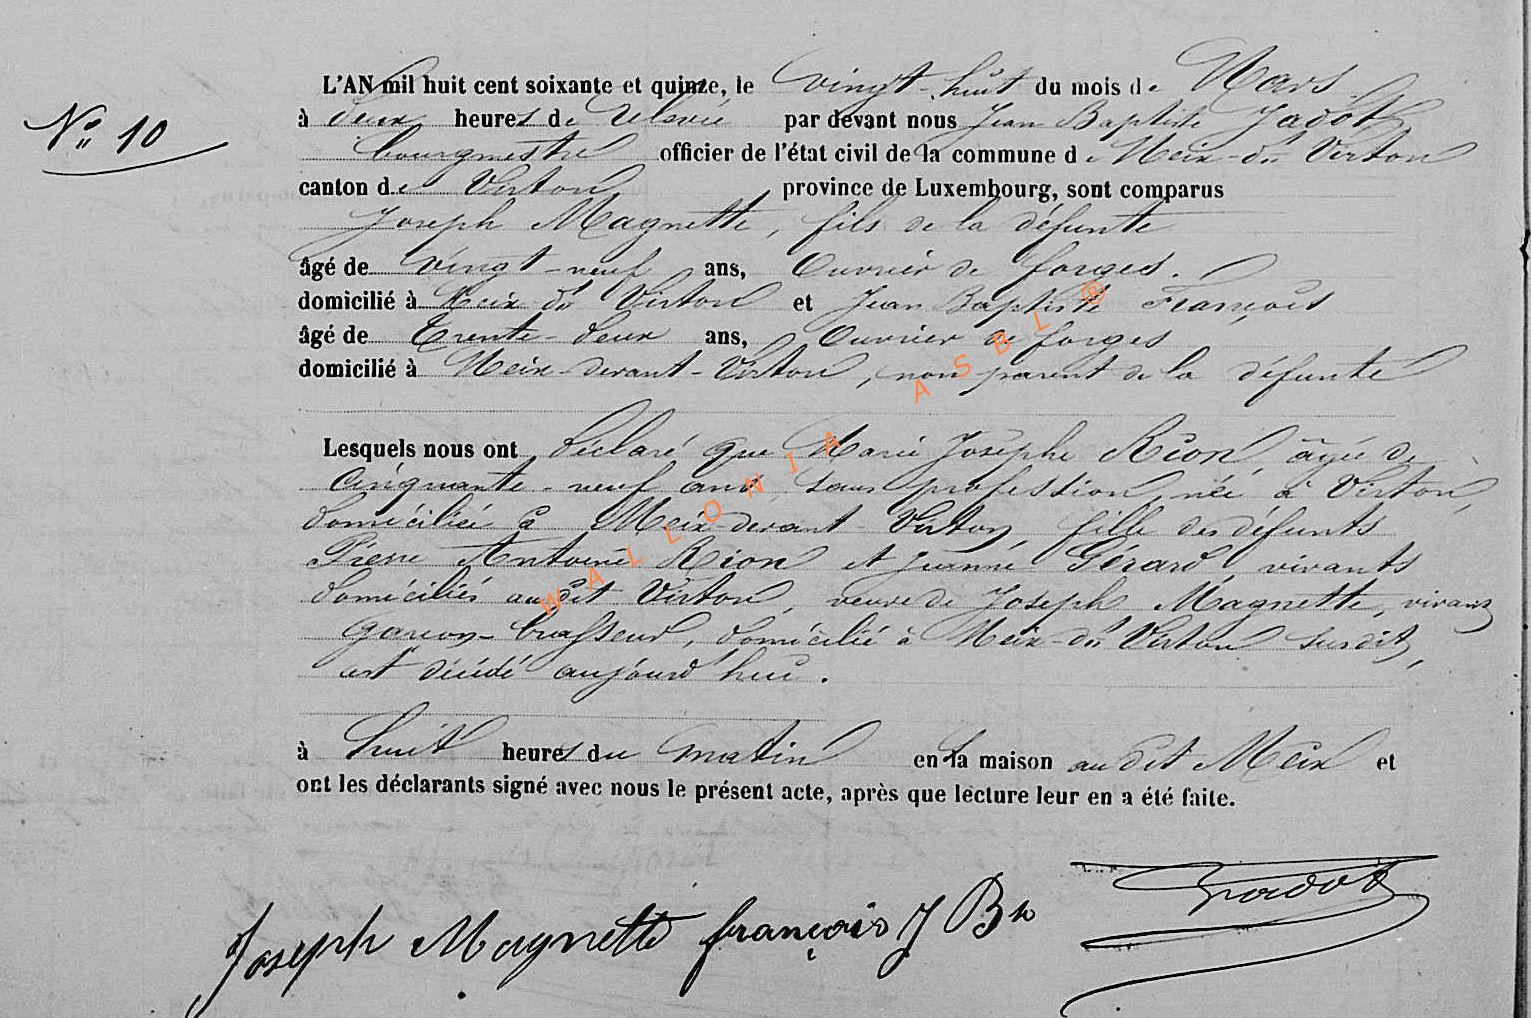 L'AN mil huit cent soixante et quinze, le vingt-huit du mois de Mars
N° 10
à deux heures de relevée par devant nous Jean Baptiste Jadot
bourgmestre officier de l'état civil de la commune de Meix-dt Virton
canton de Virton province de Luxembourg, sont comparus
Joseph Magnette, fils de la défunte
âgé de vingt-neuf ans, Ouvrier de forges.
domicilié à Meix-dt Virton et Jean Baptiste François
âgé de Trente-deux ans, Ouvrier de forges
domicilié à Meix-devant-Virton, non parent de la défunte
Lesquels nous ont déclaré que Marie Josèphe Rion, âgée de
Cinquante-neuf ans, sans profession, née à Virton,
domiciliée à Meix-devant-Virton, fille des défunts
Pierre Antoine Rion et Jeanne Gérard, vivants
domiciliés audit Virton, veuve de Joseph Magnette, vivant
garçon-brasseur, domicilié à Meix-dt Virton susdit,
est décédé aujourd'hui.
à huit heures du matin en la maison au dit Meix et
ont les déclarants signé avec nous le présent acte, après que lecture leur en a été faite.
Jadot
Joseph Magnette françois J Bte
WALLONIA ASBL ®